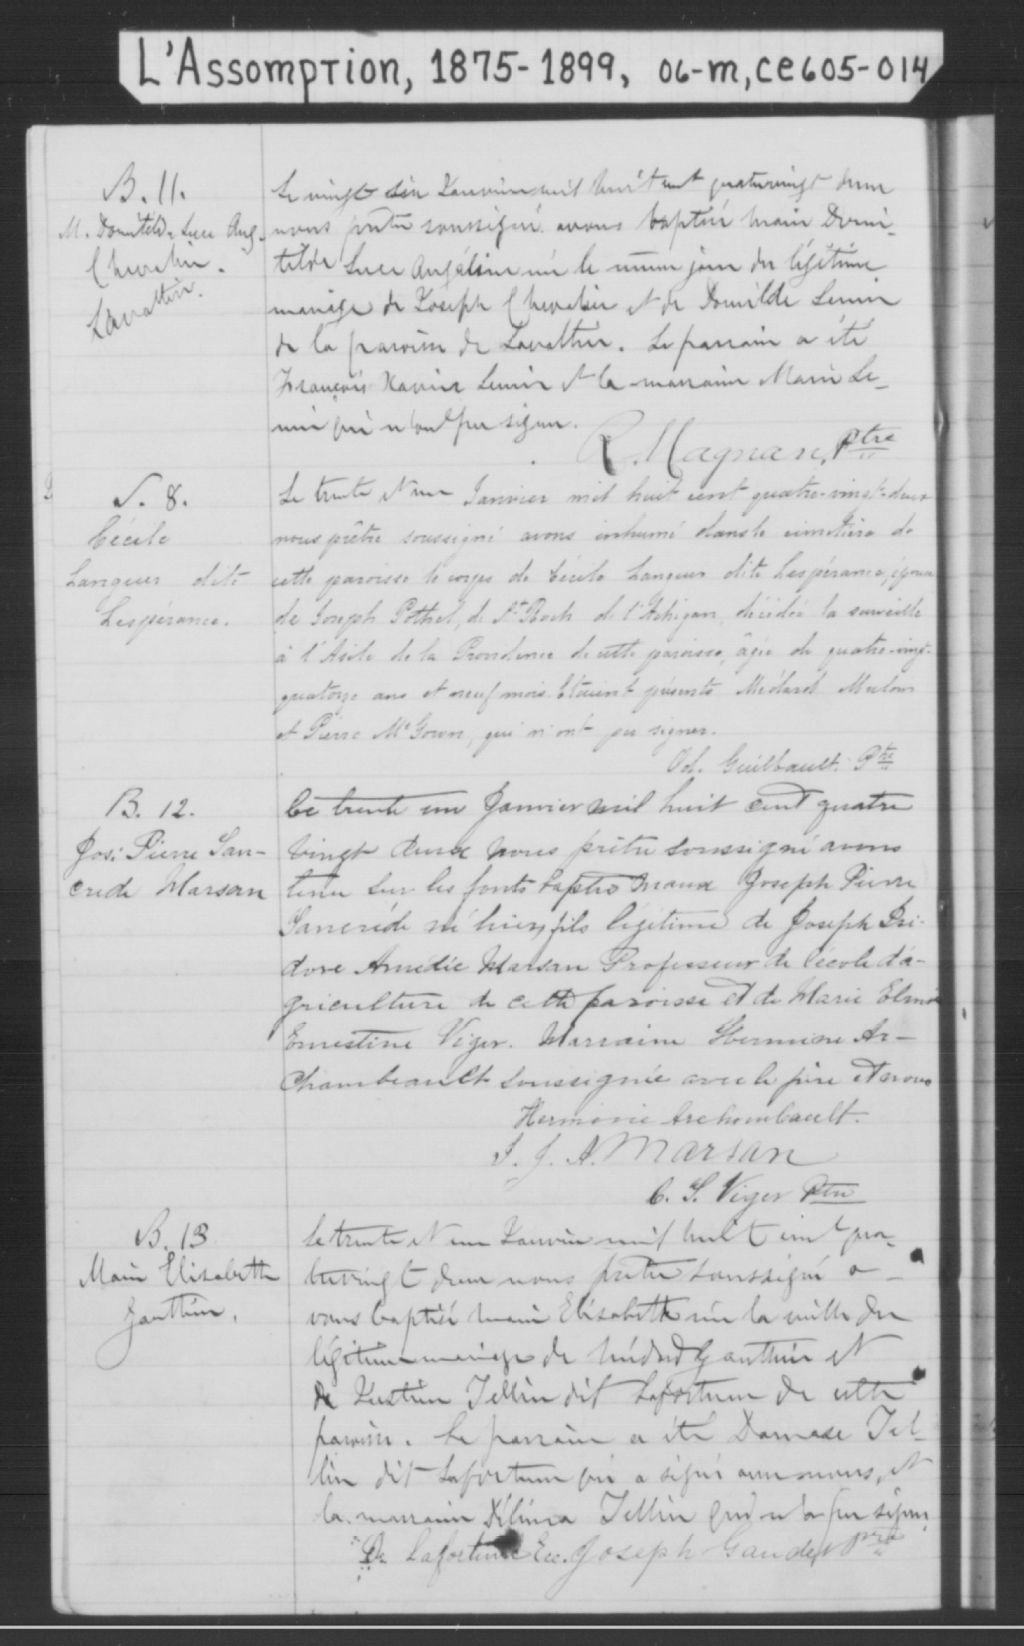 L'Assomption, 1875-1899, 06-m, ce605-014
B. 11.
M. Domitilde Luce Ang.
Chevalier.
Lavaltrie.
Le vingt six Janvier mil huit cent quatrevingt deux
nous prêtre soussigné avons baptisé Marie Domi-
tilde Luce Angéline née le même jour du légitime
mariage de Joseph Chevalier et de Domilde Lemire
de la paroisse de Lavaltrie. Le parrain a été
François Xavier Lemire et la marraine Marie Le-
mire qui n'ont pu signer.
R. Magnan, Ptre
S. 8.
Cécile
Langeur dite
Lespérance.
Le trente et un Janvier mil huit cent quatre-vingt-deux
nous prêtre soussigné avons inhumé dans le cimetière de
cette paroisse le corps de Cécile Langeur dite Lespérance, épouse
de Joseph Pothel, de St Roch de l'Achigan, décédée la surveille
à l'Asile de la Providence de cette paroisse, âgée de quatre-vingt-
quatorze ans et neuf mois. Etaient présents Médard
et Pierre McGown, qui n'ont pu signer.
Od. Guilbault. Ptre
B. 12.
Jos: Pierre San-
crede Marsan
Le trente un Janvier mil huit cent quatre
vingt deux nous prêtre soussigné avons
tenu sur les fonts baptismaux Joseph Pierre
Sancréde né hier, fils légitime de Joseph Isi-
dore Amédée Marsan Professeur de l'école d'a-
griculture de cette paroisse et de Marie
Ernestine Viger. Marraine Hermine Ar-
chambeault soussignée avec le père et nous
Herminie Archambault.
I. J. A. Marsan
C. S. Viger Ptre
B. 13
Marie Elisabeth
Gauthier.
Le trente et un Janvier mil huit cent qua-
trevingt deux nous prêtre soussigné a-
vons baptisé Marie Elisabeth née la veille du
légitime mariage de Médard Gauthier et
de Justine Tellier dit Lafortune de cette
paroisse. Le parrain a été Damase Tel-
lier dit Lafortune qui a signé avec nous, et
la marraine Délima Tellier qui n'a pu signer
D. Lafortune Ecc. Joseph Gaudet Ptre